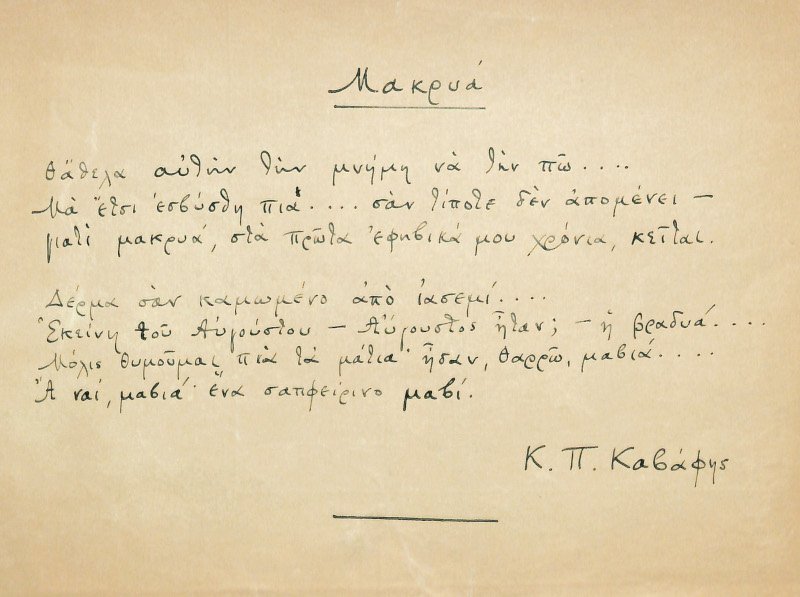 Μακρυά
θἄθελα αὐτὴν τὴν μνήμη νὰ τὴν πῶ....
Μὰ ἔτσι ἐσβύσθη πιὰ.... σὰν τίποτε δὲν ἀπομένει —
γιατὶ μακρυά, στὰ πρῶτα ἐφηβικά μου χρόνια, κεῖται.
Δέρμα σὰν καμωμένο ἀπὸ ἰασεμί....
Ἐκείνη τοῦ Αὐγούστου — Αὔγουστος ἦταν; — ἡ βραδυά....
Μόλις θυμοῦμαι πιὰ τὰ μάτια· ἦσαν, θαρρῶ, μαβιά....
Ἆ ναί, μαβιά· ἕνα σαπφείρινο μαβί.
Κ. Π. Καβάφης